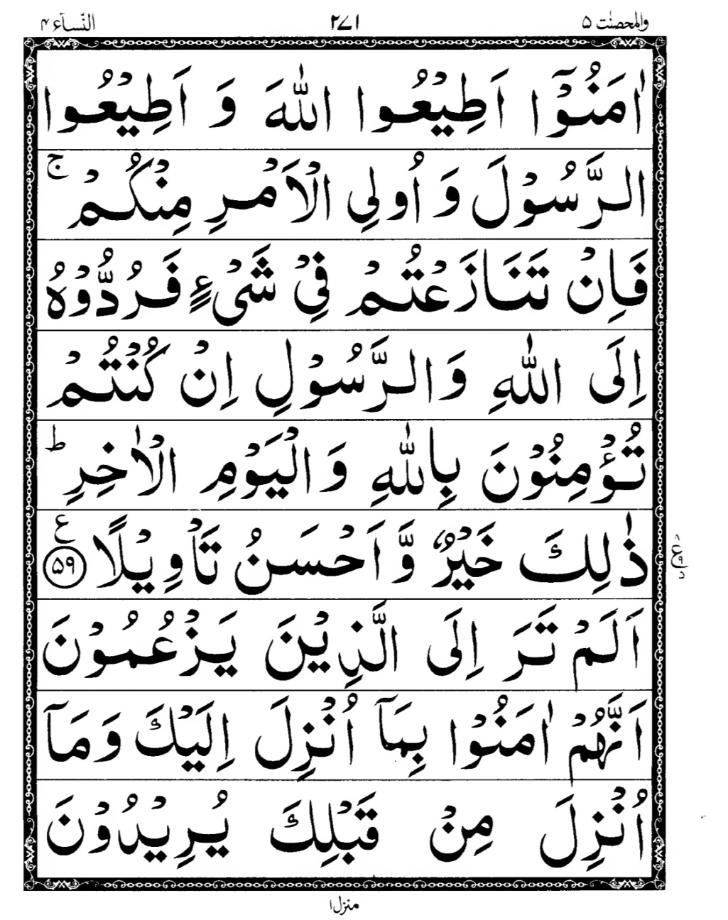 والمحصنٰت ۵ ۲۷۱ النّسآء ۴
اٰمَنُوْۤا اَطِيْعُوا اللّٰهَ وَ اَطِيْعُوا
الرَّسُوْلَ وَ اُولِي الْاَمْرِ مِنْكُمْ ۚ
فَاِنْ تَنَازَعْتُمْ فِيْ شَيْءٍ فَرُدُّوْهُ
اِلَى اللّٰهِ وَالرَّسُوْلِ اِنْ كُنْتُمْ
تُؤْمِنُوْنَ بِاللّٰهِ وَالْيَوْمِ الْاٰخِرِ ؕ
ذٰلِكَ خَيْرٌ وَّاَحْسَنُ تَاْوِيْلًا ع ۵۹
ع ۹
اَلَمْ تَرَ اِلَى الَّذِيْنَ يَزْعُمُوْنَ
اَنَّهُمْ اٰمَنُوْا بِمَاۤ اُنْزِلَ اِلَيْكَ وَمَاۤ
اُنْزِلَ مِنْ قَبْلِكَ يُرِيْدُوْنَ
منزل۱